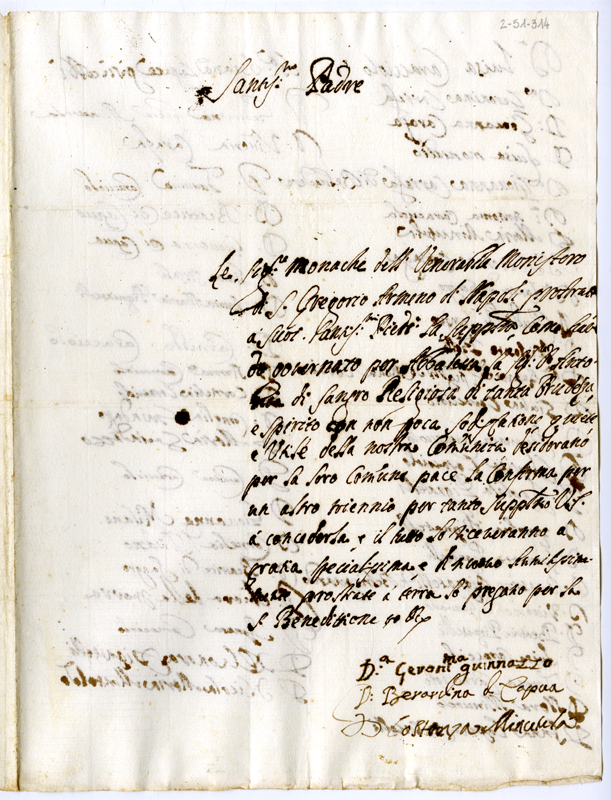 2-51-314
Santis.mo Padre
Le sig.re monache dell Venerabile Monistero
di S. Gregorio Armeno di Napoli prostrate
a suoi Santis.mi Piedi la supp.no come havendo
governato per Abbatessa la sig.ra D.
di Sangro Religiosa di tanta Prudenza
e spirito con non poca sodisfatione quiete
e Utile della nostra Comunità desiderano
per la loro comune pace la Conferma per
un altro triennio per tanto supp.no V. S.
a concederla e il tutto lo riceveranno a
gratia specialissima e di nuovo humilissima
mente prostrate a terra lo pregano per la
S. Beneditione
D.a Geronima guinnazzo
D. Berardina di Capua
D. Costanza Minutola